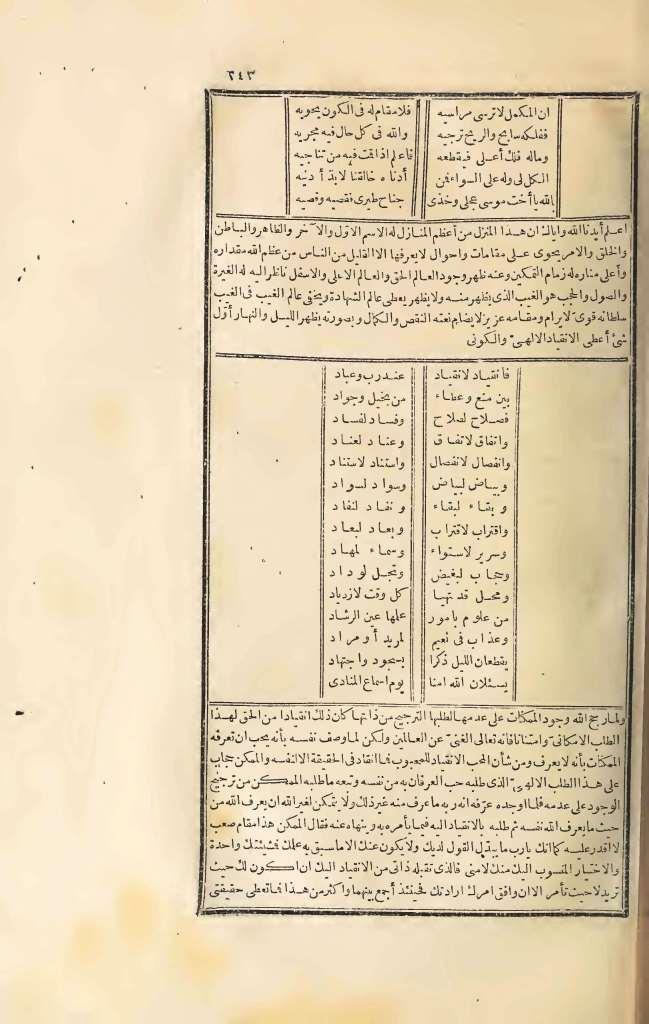 ٢٤٣
ان المكمل لا ترسى مراسيه فلا مقام له فى الكون يحويه
ففلكه سابح والريح ترجيه والله فى كل حال فيه مجريه
وماله فلك أعلى فيقطعه فاعلم اذا قمت فيه من تناجيه
الكل لى وله على السواء فمن أدناه خالقنا لابد أدنيه
بالله يا أخت موسى عجلى وخذى جناح طيرى فقصيه وقصيه
اعلم أيدنا الله واياك ان هذا المنزل من أعظم المنازل له الاسم الاول والآخر والظاهر والباطن
والخلق والامر يحوى على مقامات واحوال لا يعرفها الا القليل من الناس من عظم الله مقداره
وأعلى مناره له زمام التمكين وعنه ظهر وجود العالم الحق والعالم الاعلى والاسفل ناظر اليه له الغيرة
والصول والحجب هو الغيب الذى يظهر منه ولا يظهر يعطى عالم الشهادة ويخفى عالم الغيب فى الغيب
سلطانه قوى لا يرام ومقامه عزيز لا يضام نعته النقص والكمال وبصورته يظهر الليل والنهار أول
شئ أعطى الانقياد الالهى والكونى
فانقياد لانقياد عند رب وعباد
بين منع وعطاء من بخيل وجواد
فصلاح لصلاح وفساد لفساد
واتفاق لاتفاق وعناد لعناد
وانفصال لانفصال واستناد لاستناد
وبياض لبياض وسواد لسواد
وبقاء لبقاء ونفاد لنفاد
واقتراب لاقتراب وبعاد لبعاد
وسرير لاستواء وسماء لمهاد
وحجاب لبغيض وتجل لوداد
ومحل قد تهيا كل وقت لازدياد
من علوم بامور علمها عين الرشاد
وعذاب فى نعيم لمريد أو مراد
يقطعان الليل ذكرا بسجود واجتهاد
يسئلان الله امنا يوم اسماع المنادى
ولما رجح الله وجود الممكنات على عدمها لطلبها الترجيح من ذاتها كان ذلك انقيادا من الحق لهذا
الطلب الامكانى وامتنانا فانه تعالى الغنى عن العالمين ولكن لما وصف نفسه بأنه يحب ان تعرفه
الممكنات بأنه لا يعرف ومن شأن المحب الانقياد للمحبوب فما انقاد فى الحقيقة الا لنفسه والممكن حجاب
على هذا الطلب الالهى الذى طلبه حب العرفان به من نفسه وتبعه ما طلبه الممكن من ترجيح
الوجود على عدمه فلما اوجده عرفه انه ربه ما عرف منه غير ذلك ولا يتمكن لغير الله ان يعرف الله من
حيث ما يعرف الله نفسه ثم طلبه بالانقياد اليه فيما يأمره به وينهاه عنه فقال الممكن هذا مقام صعب
لا اقدر عليه كما انك يا رب ما يبدل القول لديك ولا يكون عنك الا ما سبق به علمك فمشيئتك واحدة
والاختيار المنسوب اليك منك لا منى فالذى تقبله ذاتى من الانقياد اليك ان اكون لك حيث
تريد لا حيث تأمر الا ان وافق امرك ارادتك فحينئذ أجمع بينهما واكثر من هذا فما تعطى حقيقتى